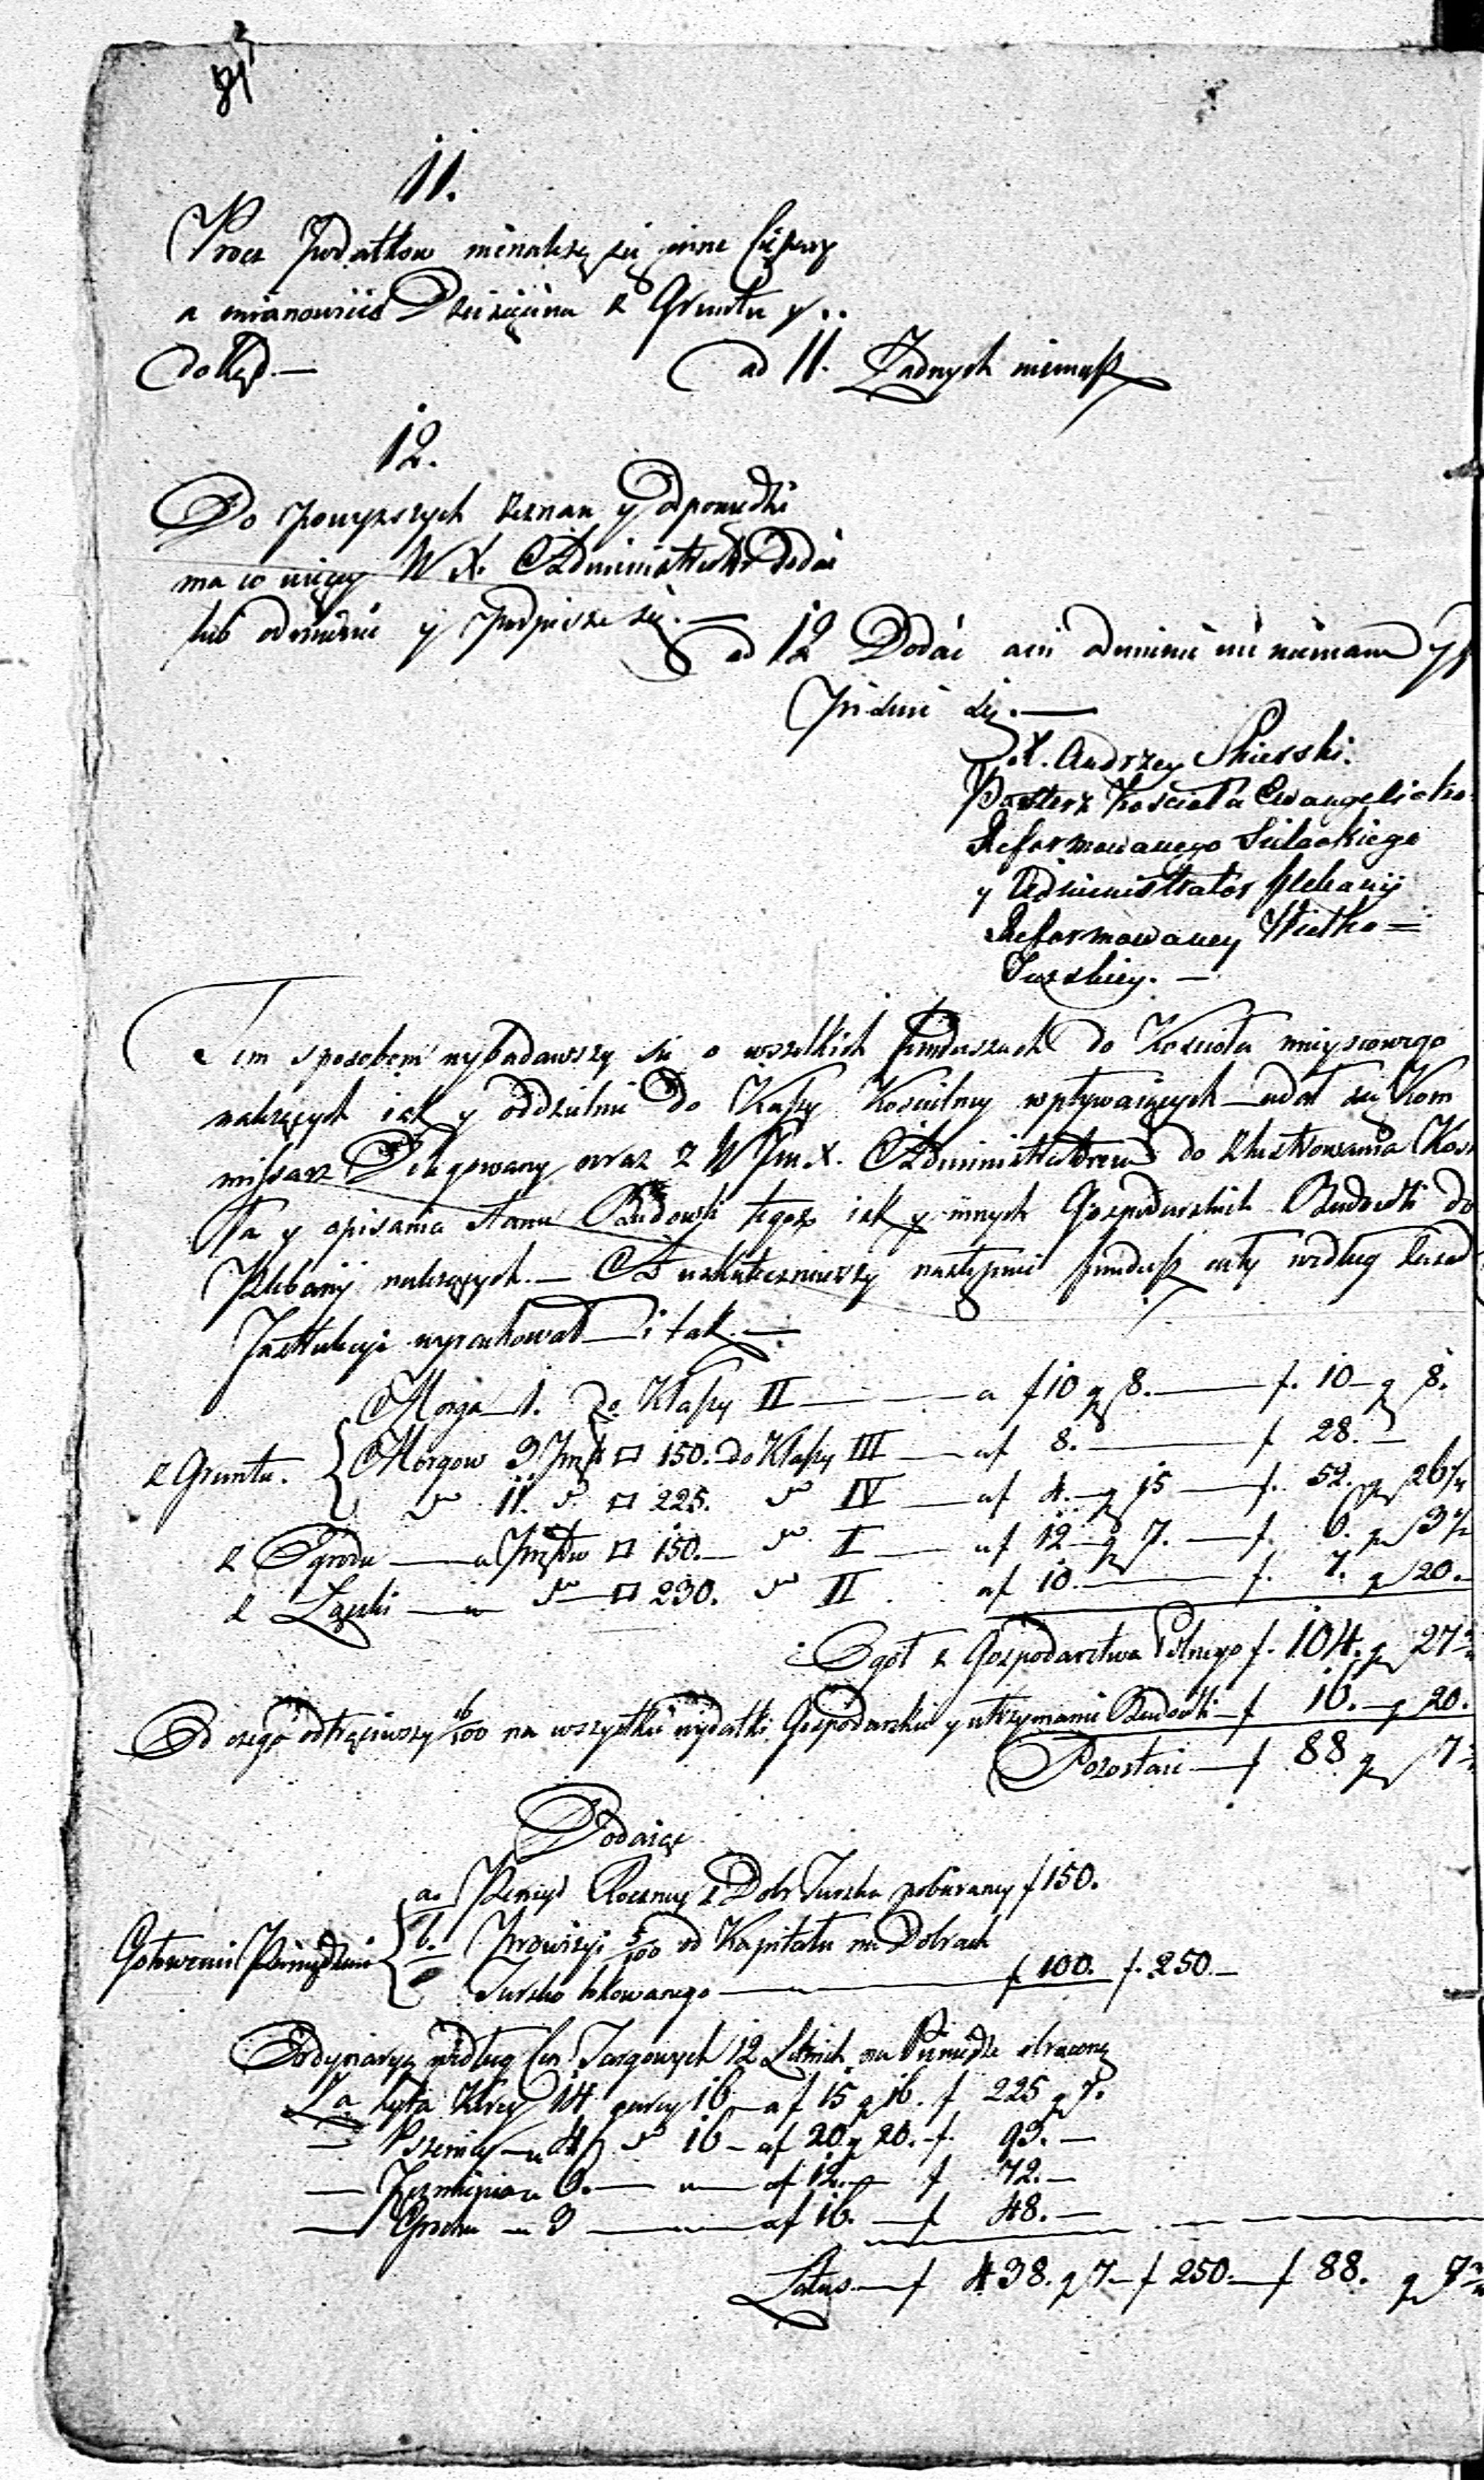 11.
Procz Podatkow nienależą się inne Cięžary
a mianowicie Dziesięcina z Gruntu y..
dokąd.—
ad 11. Żadnych niemasz
12.
Do powyższych zeznan y odpowiedzi
ma co więcy W X. Administrator dodać
lub odmienić y podpisze się.—
ad 12 Dodać ani odmienić nic niemam y
się.—
X. Andrzey Skierski.
Pasterz Kościoła Ewangelicko
Reformowanego Sieleckiego
y Administrator plebanij
Reformowaney Wielko=
Turskiey.—
Tem sposobem wybadawszy się o wszelkich funduszach do Kościoła mieyscowego
należących iak y oddzielnie do Kassy Kościelney wpływaiących udał się Kom
missarz Delegowany wraz z W Jm. X. Administratorem do zlustrowania Kos
ła y opisania stanu Budowli tegoż iak y innych Gospodarskich Budowli do
Plebanij należących.— A uskuteczniwszy następnie fundusz cały według zasad
Instrukcyi wyrachował i tak.—
Morga 1. do Klassy II — a f 10 g 8. — f. 10 g 8.
z Gruntu. Morgow 3 Prętow □ 150. do Klassy III — a f 8. — f 28.—
do 11. do □ 225. do IV — a f 4. g 15 — f. 52. g 26 1/4
z Ogrodu — a Prętow □ 150.— do I — a f 12 g 7. — f. 6. g 3 1/2
z Łączki — do □ 230. do II a f 10. — f. 7. g 20.
Ogół z Gospodarstwa Rolnego f. 104. g 27
Od czego odtrąciwszy 16/100 na wszystkie wydatki Gospodarskie y utrzymanie Budowli — f 16. — g 20.
Pozostaie — f 88 g 7
Dodaiąc
a. Pensyi Roczney z Dobr Turska pobieraney f 150.
Gotowemi Pieniędzmi b. Prowizyi 5/100 od Kapitału na Dobrach
Tursko lokowanego — f 100. f. 250.—
Ordynaryą według Cen Targowych 12 Letnich na Pieniądze obrocona
Za żyta Korcy 14 garcy 16 — a f 15 g 16. f 225 g 7.
— Pszenicy — 4 do 16 — a f 20 g 20. f. 93.—
— Jęczmienia 6. — a f 12. — f 72.—
— Grochu — 3 — a f 16. — f 48.—
Latus — f 438. g 7 — f 250 — f 88. g 7